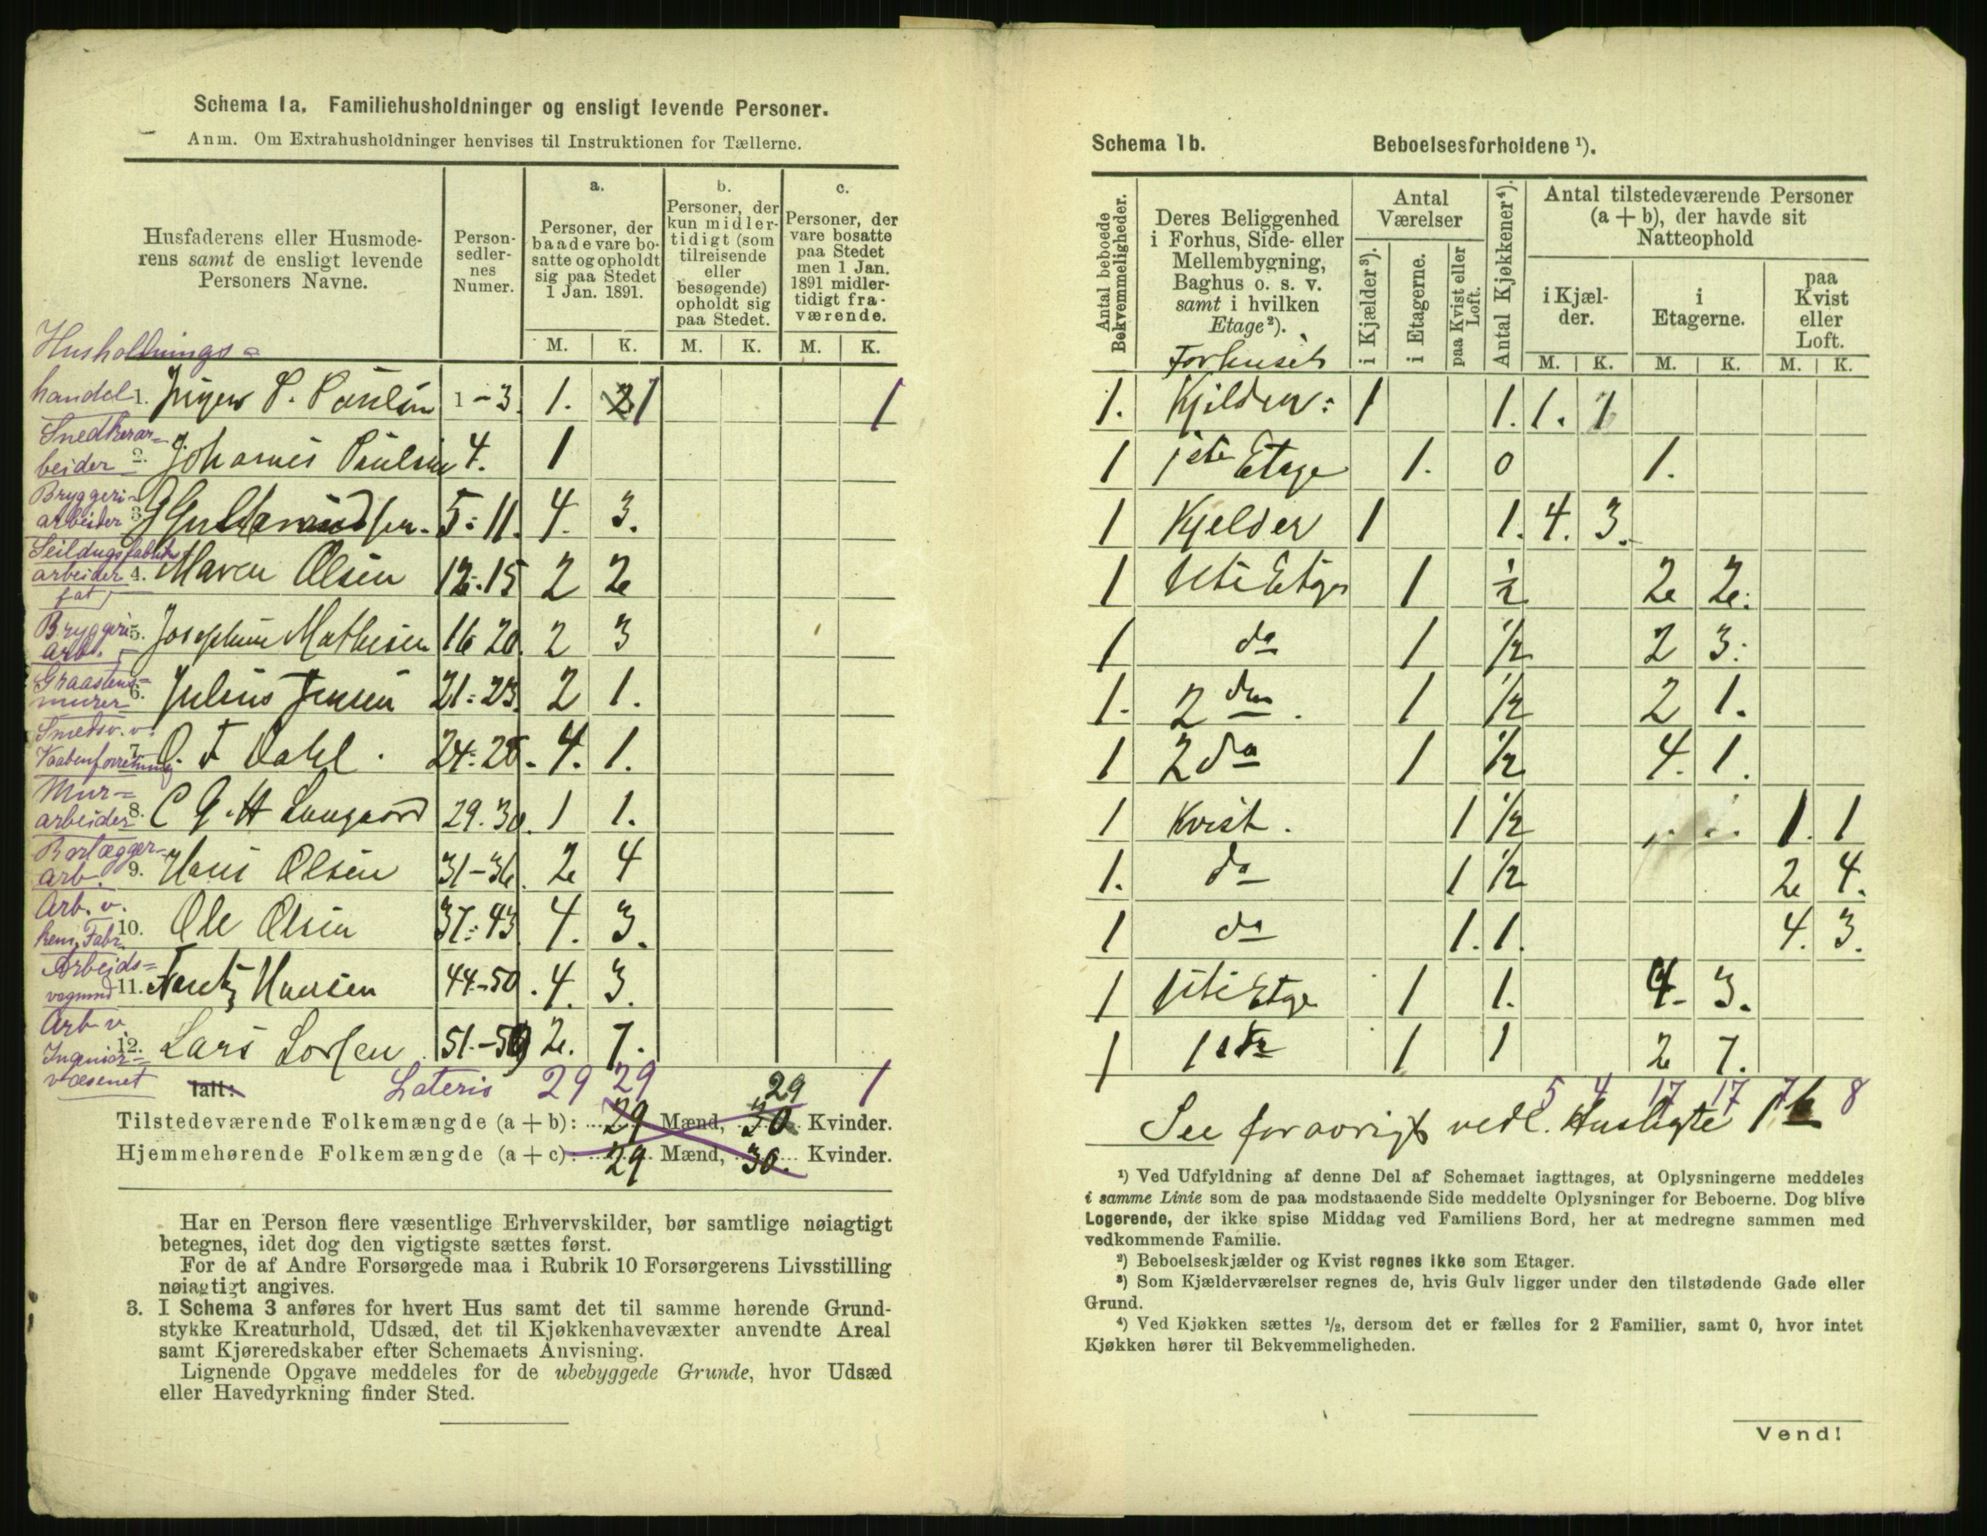 Schema 1a. Familiehusholdninger og ensligt levende Personer.
Anm. Om Extrahusholdninger henvises til Instruktionen for Tællerne.
Husfaderens eller Husmoderens samt de ensligt levende Personers Navne.
Personsedlernes Numer.
a. Personer, der baade vare bosatte og opholdt sig paa Stedet 1 Jan. 1891.
b. Personer, der kun midlertidigt (som tilreisende eller besøgende) opholdt sig paa Stedet.
c. Personer, der vare bosatte paa Stedet men 1 Jan. 1891 midlertidigt fraværende.
M. K. M. K. M. K.
Husholdnings=
handel 1. P. 1-3. 1. 1 1
Snedkerar=
beider 2. Johannes Paulsen 4. 1
Bryggeri=
arbeider 3. 5-11. 4. 3.
Seildugsfabrik
arbeider 4. Maren Olsen 12-15 2 2
fat
Bryggeri
arb. 5. Josephine Mathisen 16 20. 2 3
Graastens=
murer 6. Julius Jensen 21-23. 2 1.
Smedsv. v.
Vaabenforretning 7. O. F Dahl. 24-28. 4. 1.
Mur=
arbeider 8. C G. H 29.30. 1 1.
arb. 9. Hans Olsen 31-36. 2 4
Arb. v.
kem. Fabr. 10. Ole Olsen 37-43 4. 3.
Arbeids=
vognmd 11. Hansen 44-50. 4. 3.
Arb. v.
Ingeniør=
væsenet
12. Lars 51.-59 2. 7.
Ialt: Lateris 29 29 1
29
Tilstedeværende Folkemængde (a + b): 29 Mænd, 30 Kvinder.
Hjemmehørende Folkemængde (a + c): 29 Mænd, 30. Kvinder.
Har en Person flere væsentlige Erhvervskilder, bør samtlige nøiagtigt
betegnes, idet dog den vigtigste sættes først.
For de af Andre Forsørgede maa i Rubrik 10 Forsørgerens Livsstilling
nøiagtigt angives.
3. I Schema 3 anføres for hvert Hus samt det til samme hørende Grund-
stykke Kreaturhold, Udsæd, det til Kjøkkenhavevæxter anvendte Areal
samt Kjøreredskaber efter Schemaets Anvisning.
Lignende Opgave meddeles for de ubebyggede Grunde, hvor Udsæd
eller Havedyrkning finder Sted.
Schema 1b. Beboelsesforholdene ¹).
Antal beboede Bekvemmeligheder.
Deres Beliggenhed i Forhus, Side- eller Mellembygning, Baghus o. s. v. samt i hvilken Etage ²).
Antal Værelser
i Kjælder ³).
i Etagerne.
paa Kvist eller Loft.
Antal Kjøkkener ⁴).
Antal tilstedeværende Personer (a + b), der havde sit Natteophold
i Kjælder.
i Etagerne.
paa Kvist eller Loft.
M. K. M. K. M. K.
Forhuset
1. Kjelder: 1 1. 1. 1
1 1ste Etage 1. 0 1.
1 Kjelder 1 1. 4. 3.
1 1ste Etage 1 ½ 2 2.
1 do 1 ½ 2 3.
1. 2 den. 1 ½ 2 1.
1 2 do 1 ½ 4. 1.
1 Kvist. 1 ½ 1. 1
1. do 1 ½ 2 4.
1 do 1. 1. 4. 3.
1 1ste Etage 1 1. 4. 3.
1 1 1 1 2 7.
5 4 17 17 7 8
See foroivrigt vedl. Husliste 1 b
¹) Ved Udfyldning af denne Del af Schemaet iagttages, at Oplysningerne meddeles
i samme Linie som de paa modstaaende Side meddelte Oplysninger for Beboerne. Dog blive
Logerende, der ikke spise Middag ved Familiens Bord, her at medregne sammen med
vedkommende Familie.
²) Beboelseskjælder og Kvist regnes ikke som Etager.
³) Som Kjælderværelser regnes de, hvis Gulv ligger under den tilstødende Gade eller
Grund.
⁴) Ved Kjøkken sættes ½, dersom det er fælles for 2 Familier, samt 0, hvor intet
Kjøkken hører til Bekvemmeligheden.
Vend!